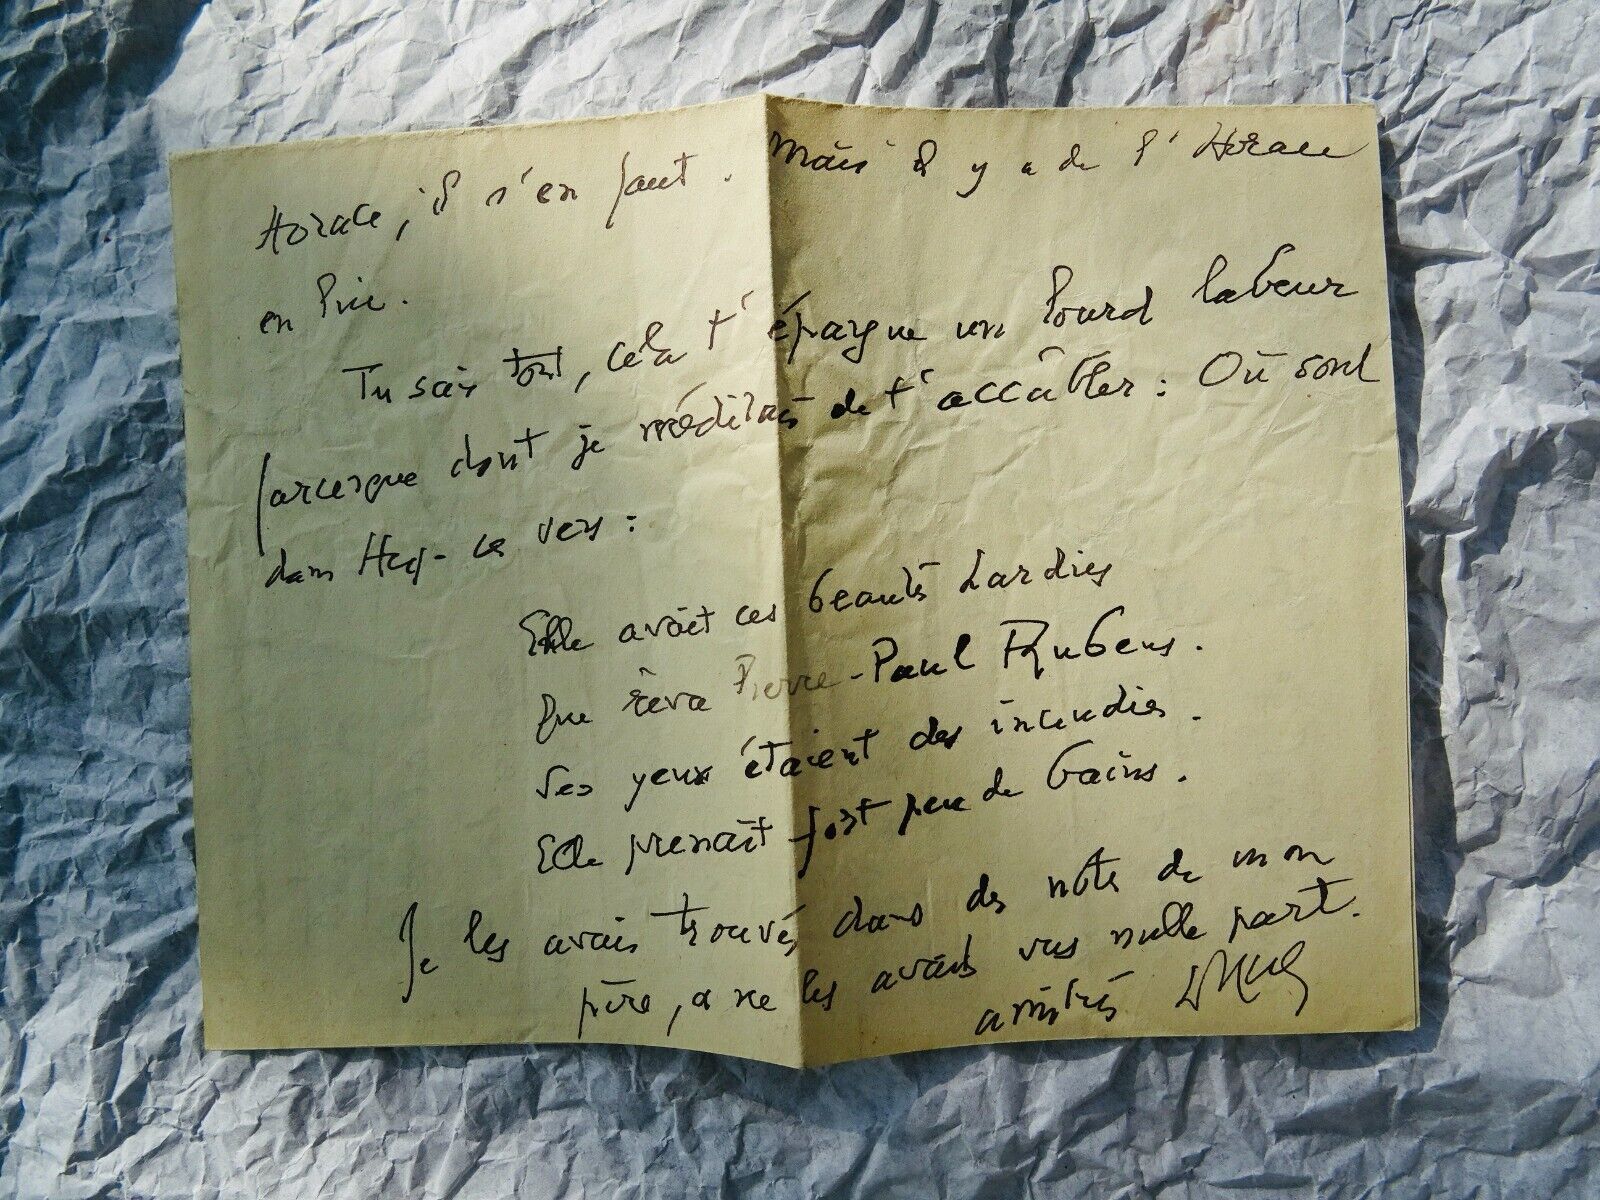 Horace, il s'en faut. Mais il y a de l'Horace
en lui.
Tu sais tout, cela t'épargne un lourd labeur
farcesque dont je méditais de t'accabler : Où sont
dans Hug- ces vers :
Elle avait ces beautés hardies
Que rêva Pierre-Paul Rubens.
Ses yeux étaient des incendies.
Elle prenait fort peu de bains.
Je les avais trouvés dans des notes de mon
père, & ne les avais vus nulle part.
amitiés